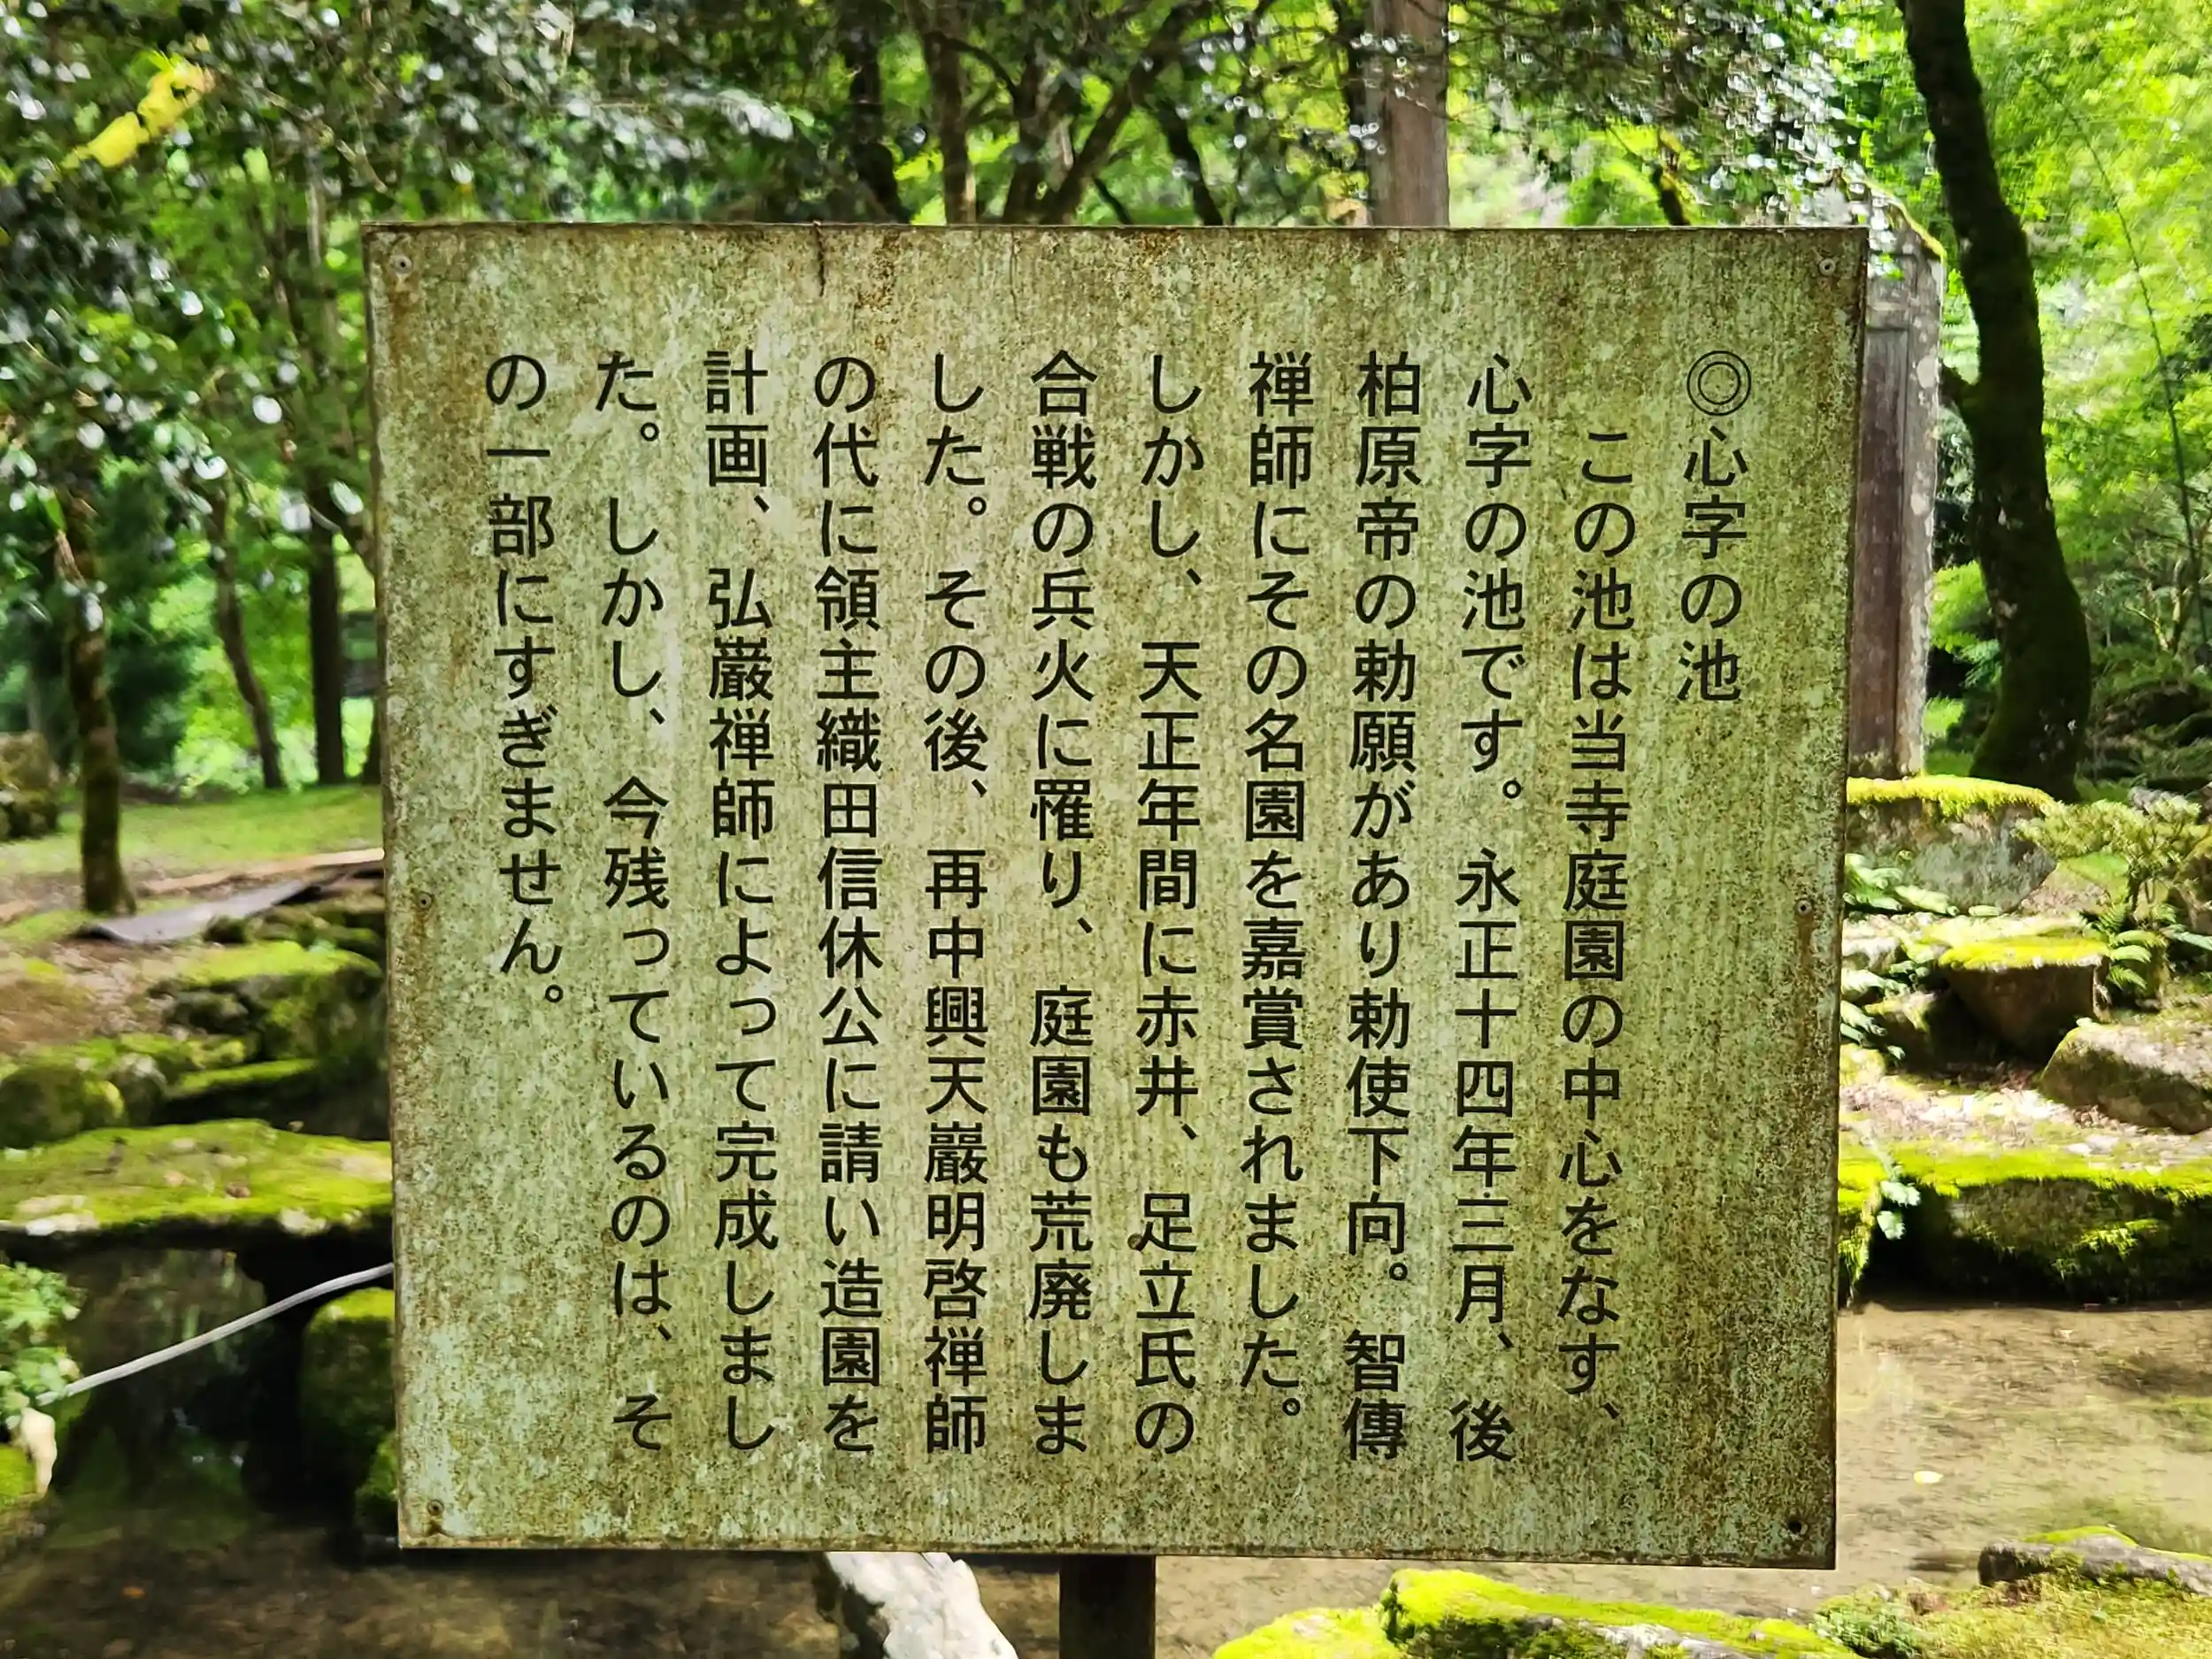 ◎心字の池
この池は当寺庭園の中心をなす、
心字の池です。永正十四年三月、後
柏原帝の勅願があり勅使下向。智傳
禅師にその名園を嘉賞されました。
しかし、天正年間に赤井、足立氏の
合戦の兵火に罹り、庭園も荒廃しま
した。その後、再中興天巖明啓禅師
の代に領主織田信休公に請い造園を
計画、弘巖禅師によって完成しまし
た。しかし、今残っているのは、そ
の一部にすぎません。